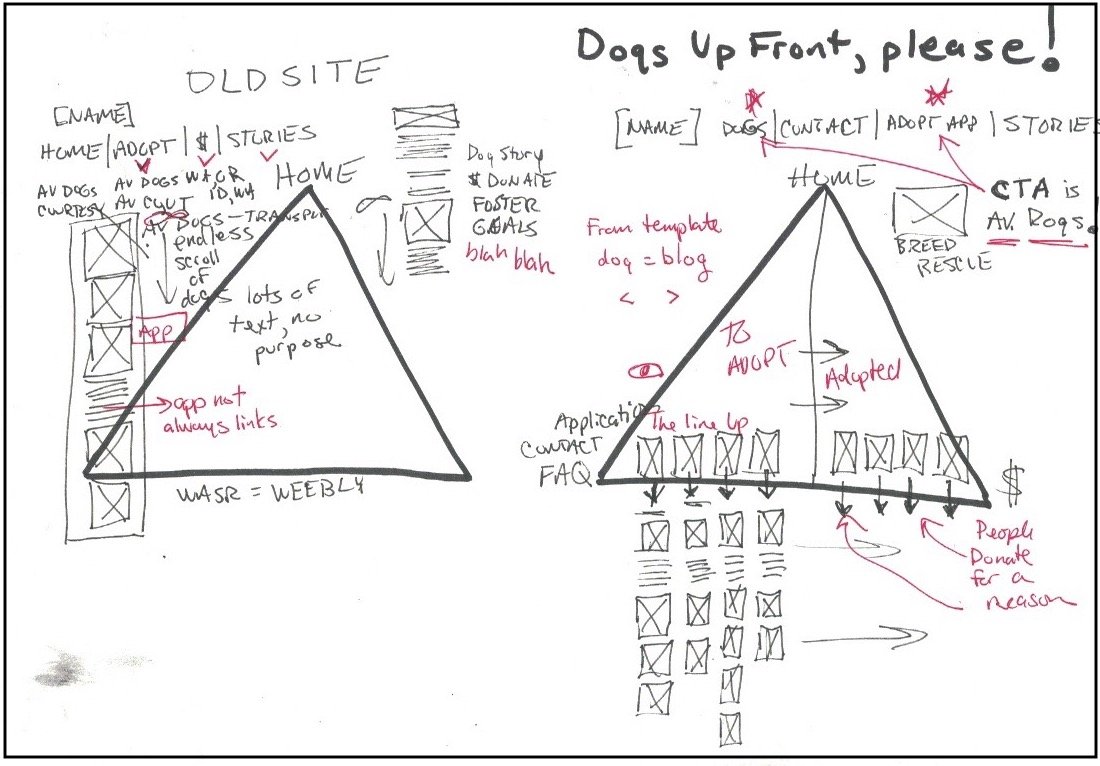 OLD SITE
[NAME]
HOME | ADOPT | $ | STORIES
AV DOGS
AV DOGS
AV
AV DOGS - TRANSPORT
endless
scroll
of
dogs
App
app not
always links
HOME
lots of
text, no
purpose
WASR = WEEBLY
Dog Story
$ DONATE
FOSTER
GOALS
blah blah
Dogs Up Front, please!
[NAME] DOGS | CONTACT | ADOPT APP | STORIES
HOME
CTA is
AV. Dogs.
BREED
RESCUE
From template
dog = blog
< >
TO
ADOPT
Adopted
Application
CONTACT
FAQ
The line up
$
People
Donate
for a
reason